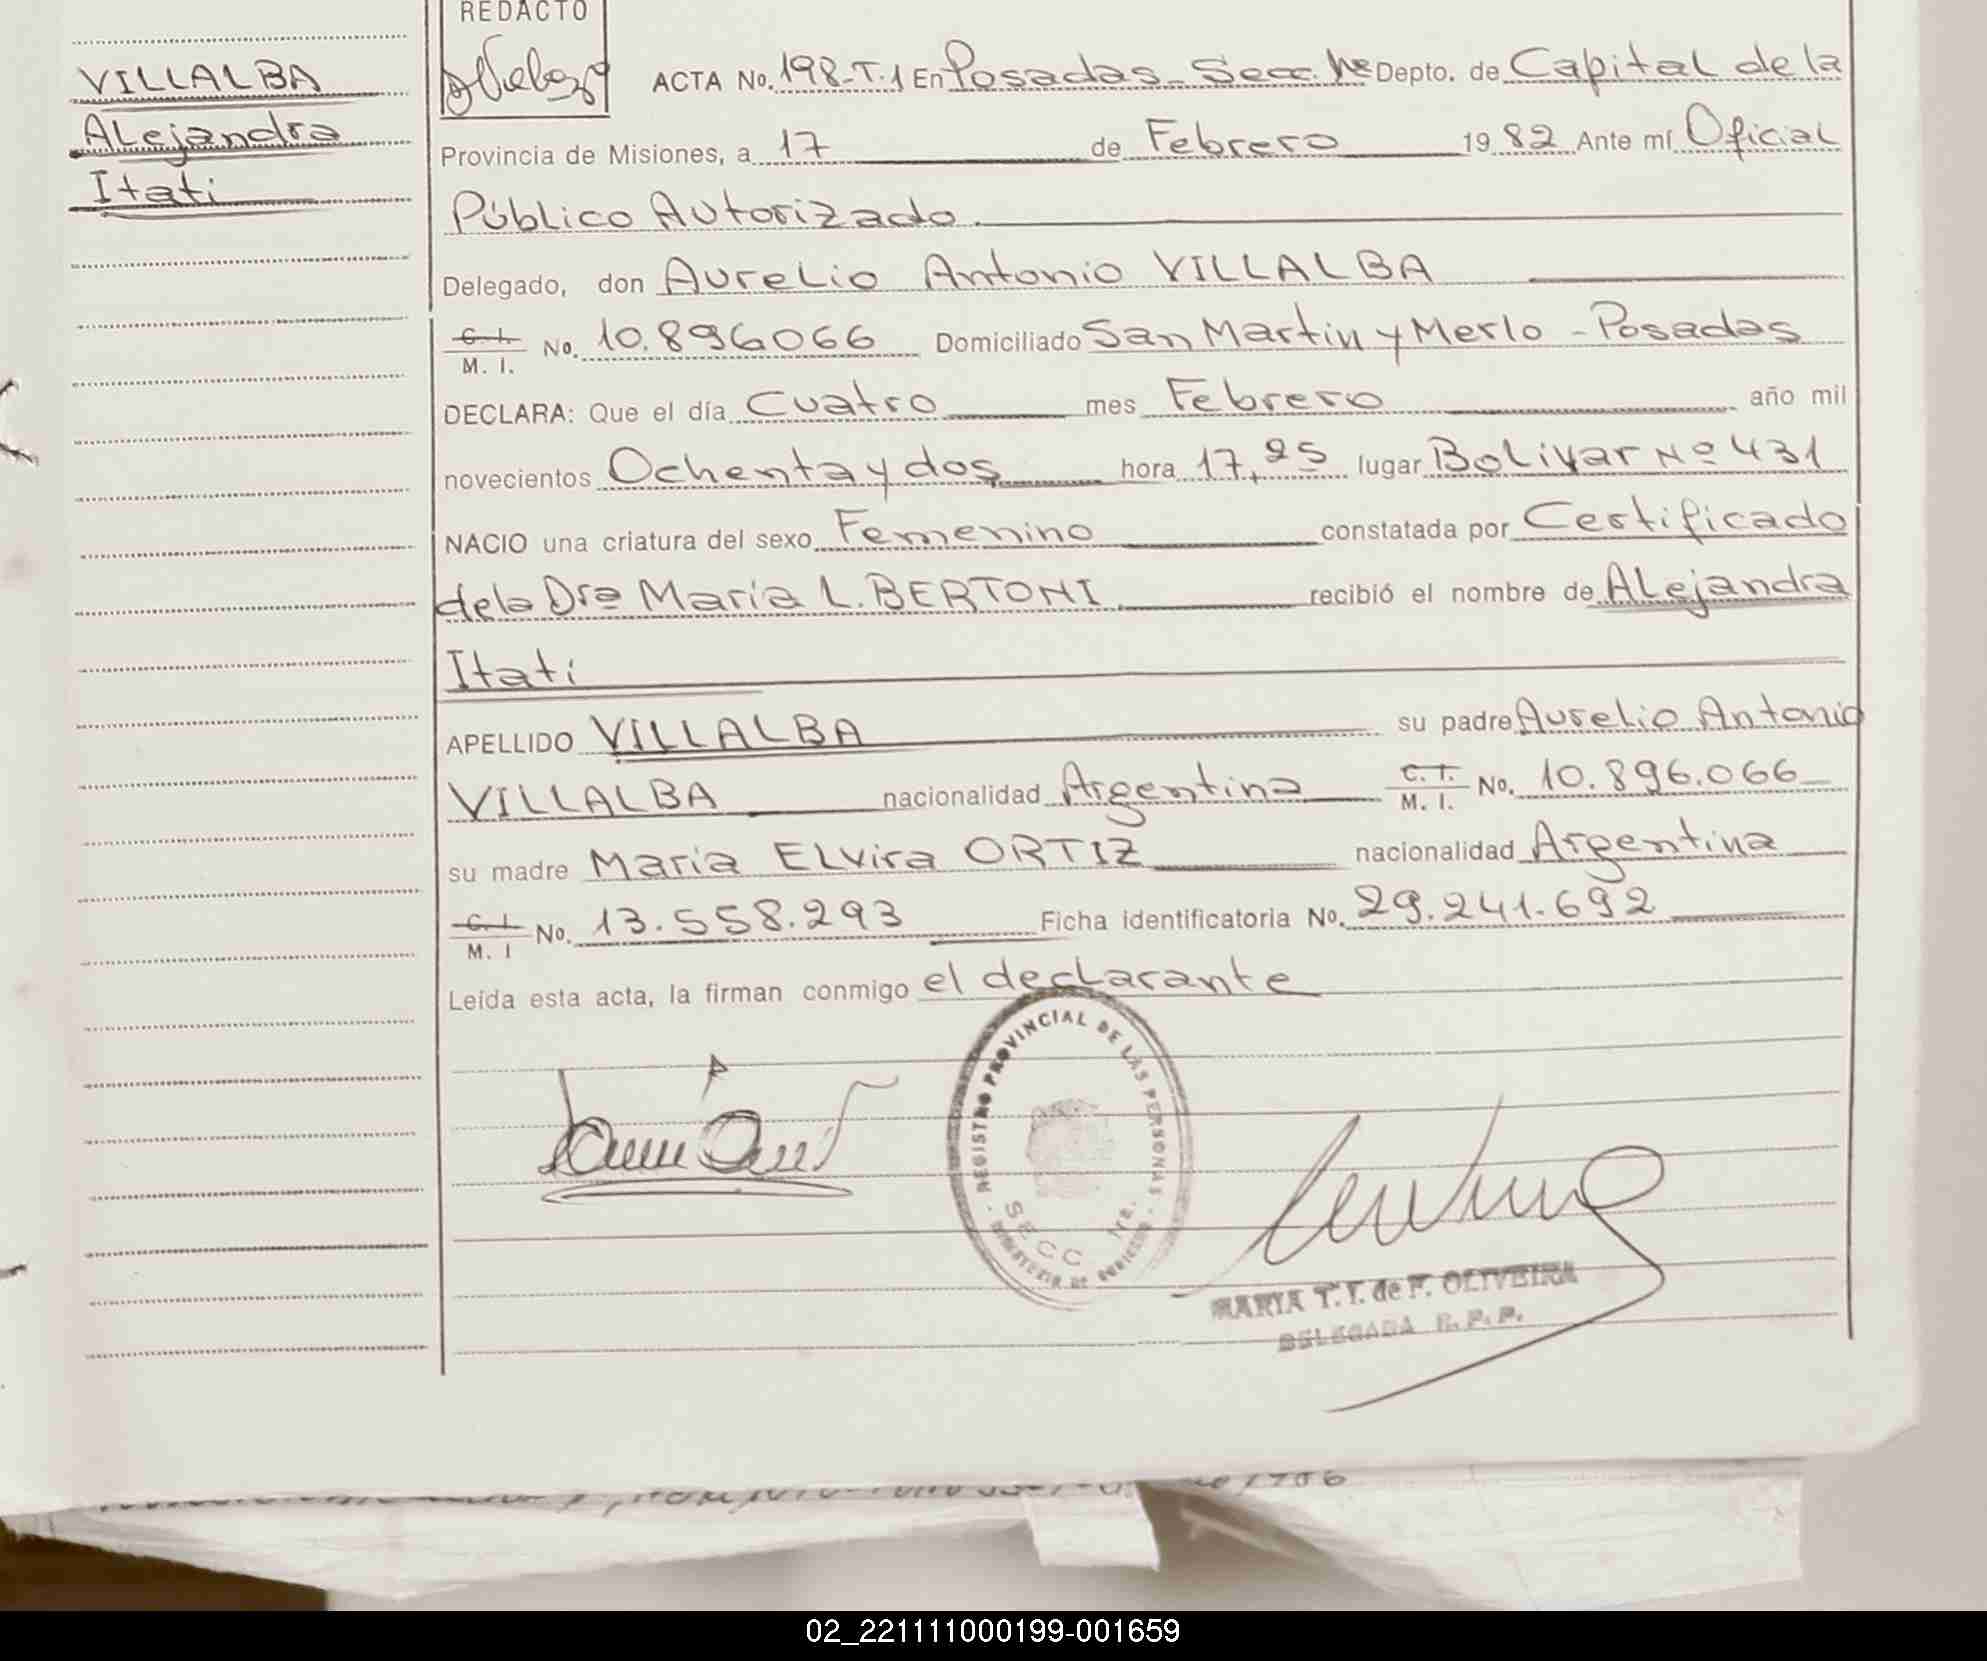 REDACTO
VILLALBA
Alejandra
Itatí
ACTA No. 198-T.1 En Posadas - Secc. 1ra Depto. de Capital de la
Provincia de Misiones, a 17 de Febrero 1982 Ante mí Oficial
Público Autorizado.
Delegado, don Aurelio Antonio VILLALBA
C. I. M. I. No. 10.896066 Domiciliado San Martin y Merlo - Posadas
DECLARA: Que el día Cuatro mes Febrero año mil
novecientos Ochenta y dos hora 17,25 lugar Bolivar Nº 431
NACIO una criatura del sexo Femenino constatada por Certificado
de la Dra María L. BERTONI recibió el nombre de Alejandra
Itatí
APELLIDO VILLALBA su padre Aurelio Antonio
VILLALBA nacionalidad Argentina C. I. M. I. No. 10.896.066
su madre María Elvira ORTIZ nacionalidad Argentina
C. I. M. I No. 13.558.293 Ficha identificatoria No. 29.241.692
Leída esta acta, la firman conmigo el declarante
REGISTRO PROVINCIAL DE LAS PERSONAS
SECC 1ra.
MINISTERIO DE GOBIERNO
MARIA T. I. de F. OLIVEIRA
DELEGADA R. P. P.
02_221111000199-001659